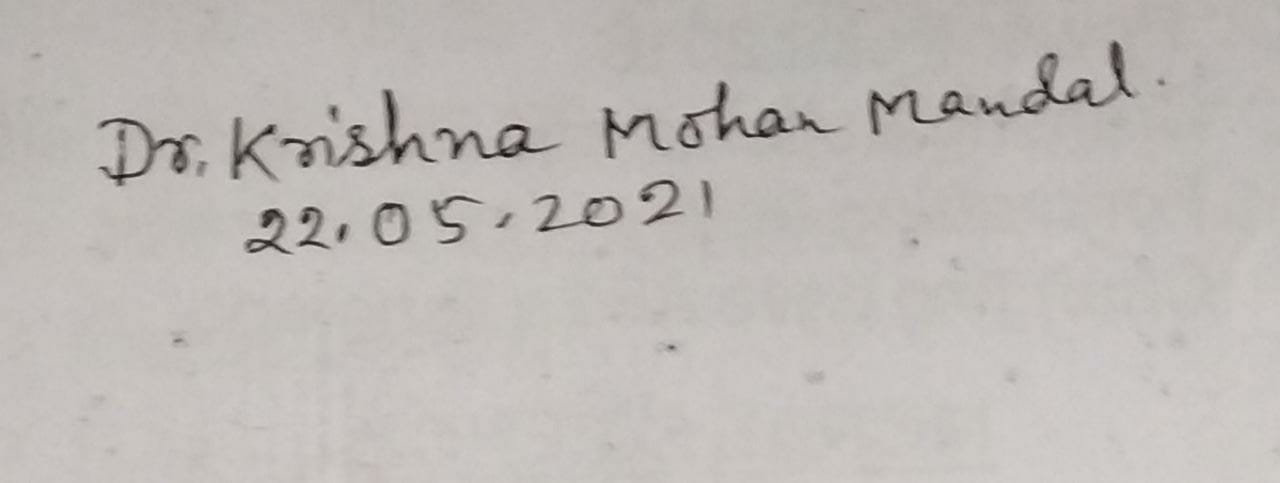 Dr. Krishna Mohan Mandal.
22.05.2021